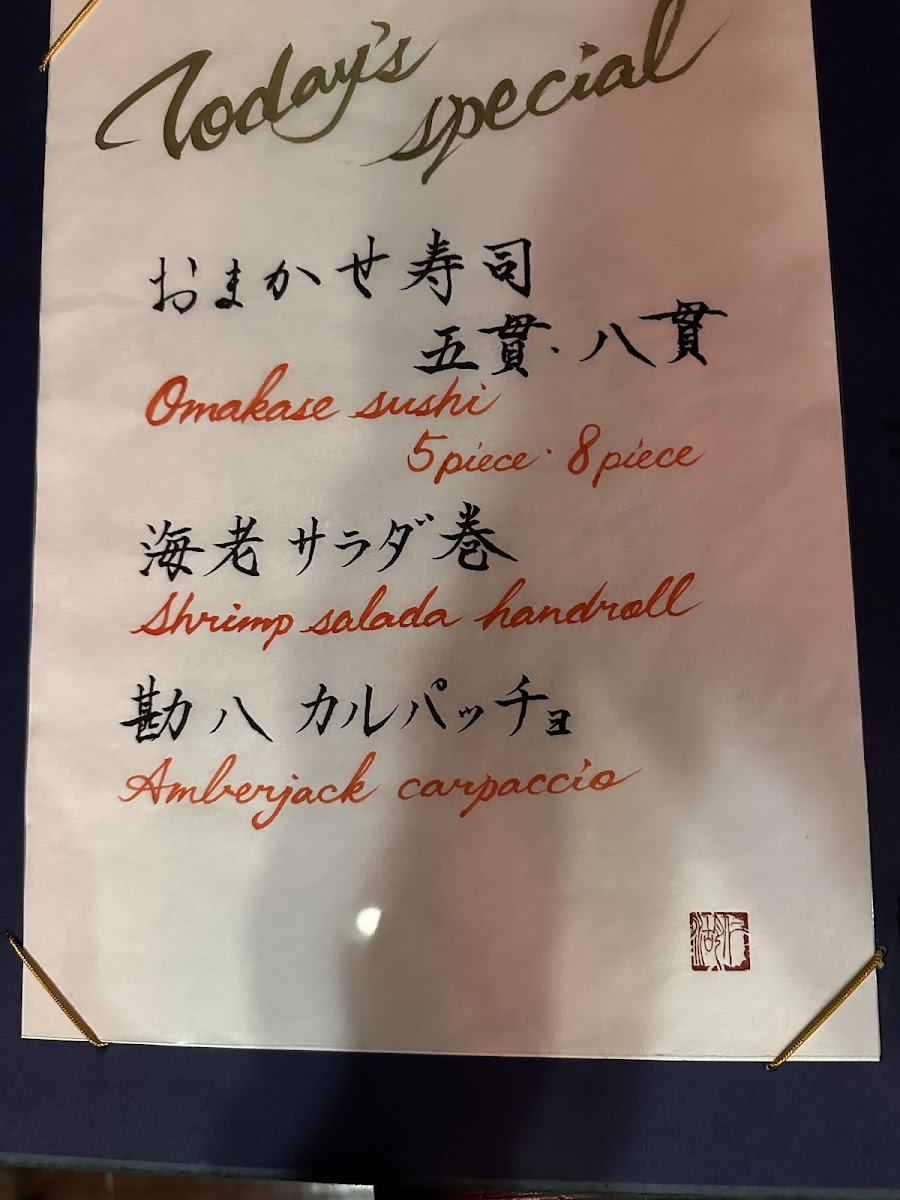 Today's
special
おまかせ寿司
五貫・八貫
Omakase sushi
5piece・8piece
海老サラダ巻
Shrimp salada handroll
勘八カルパッチョ
Amberjack carpaccio